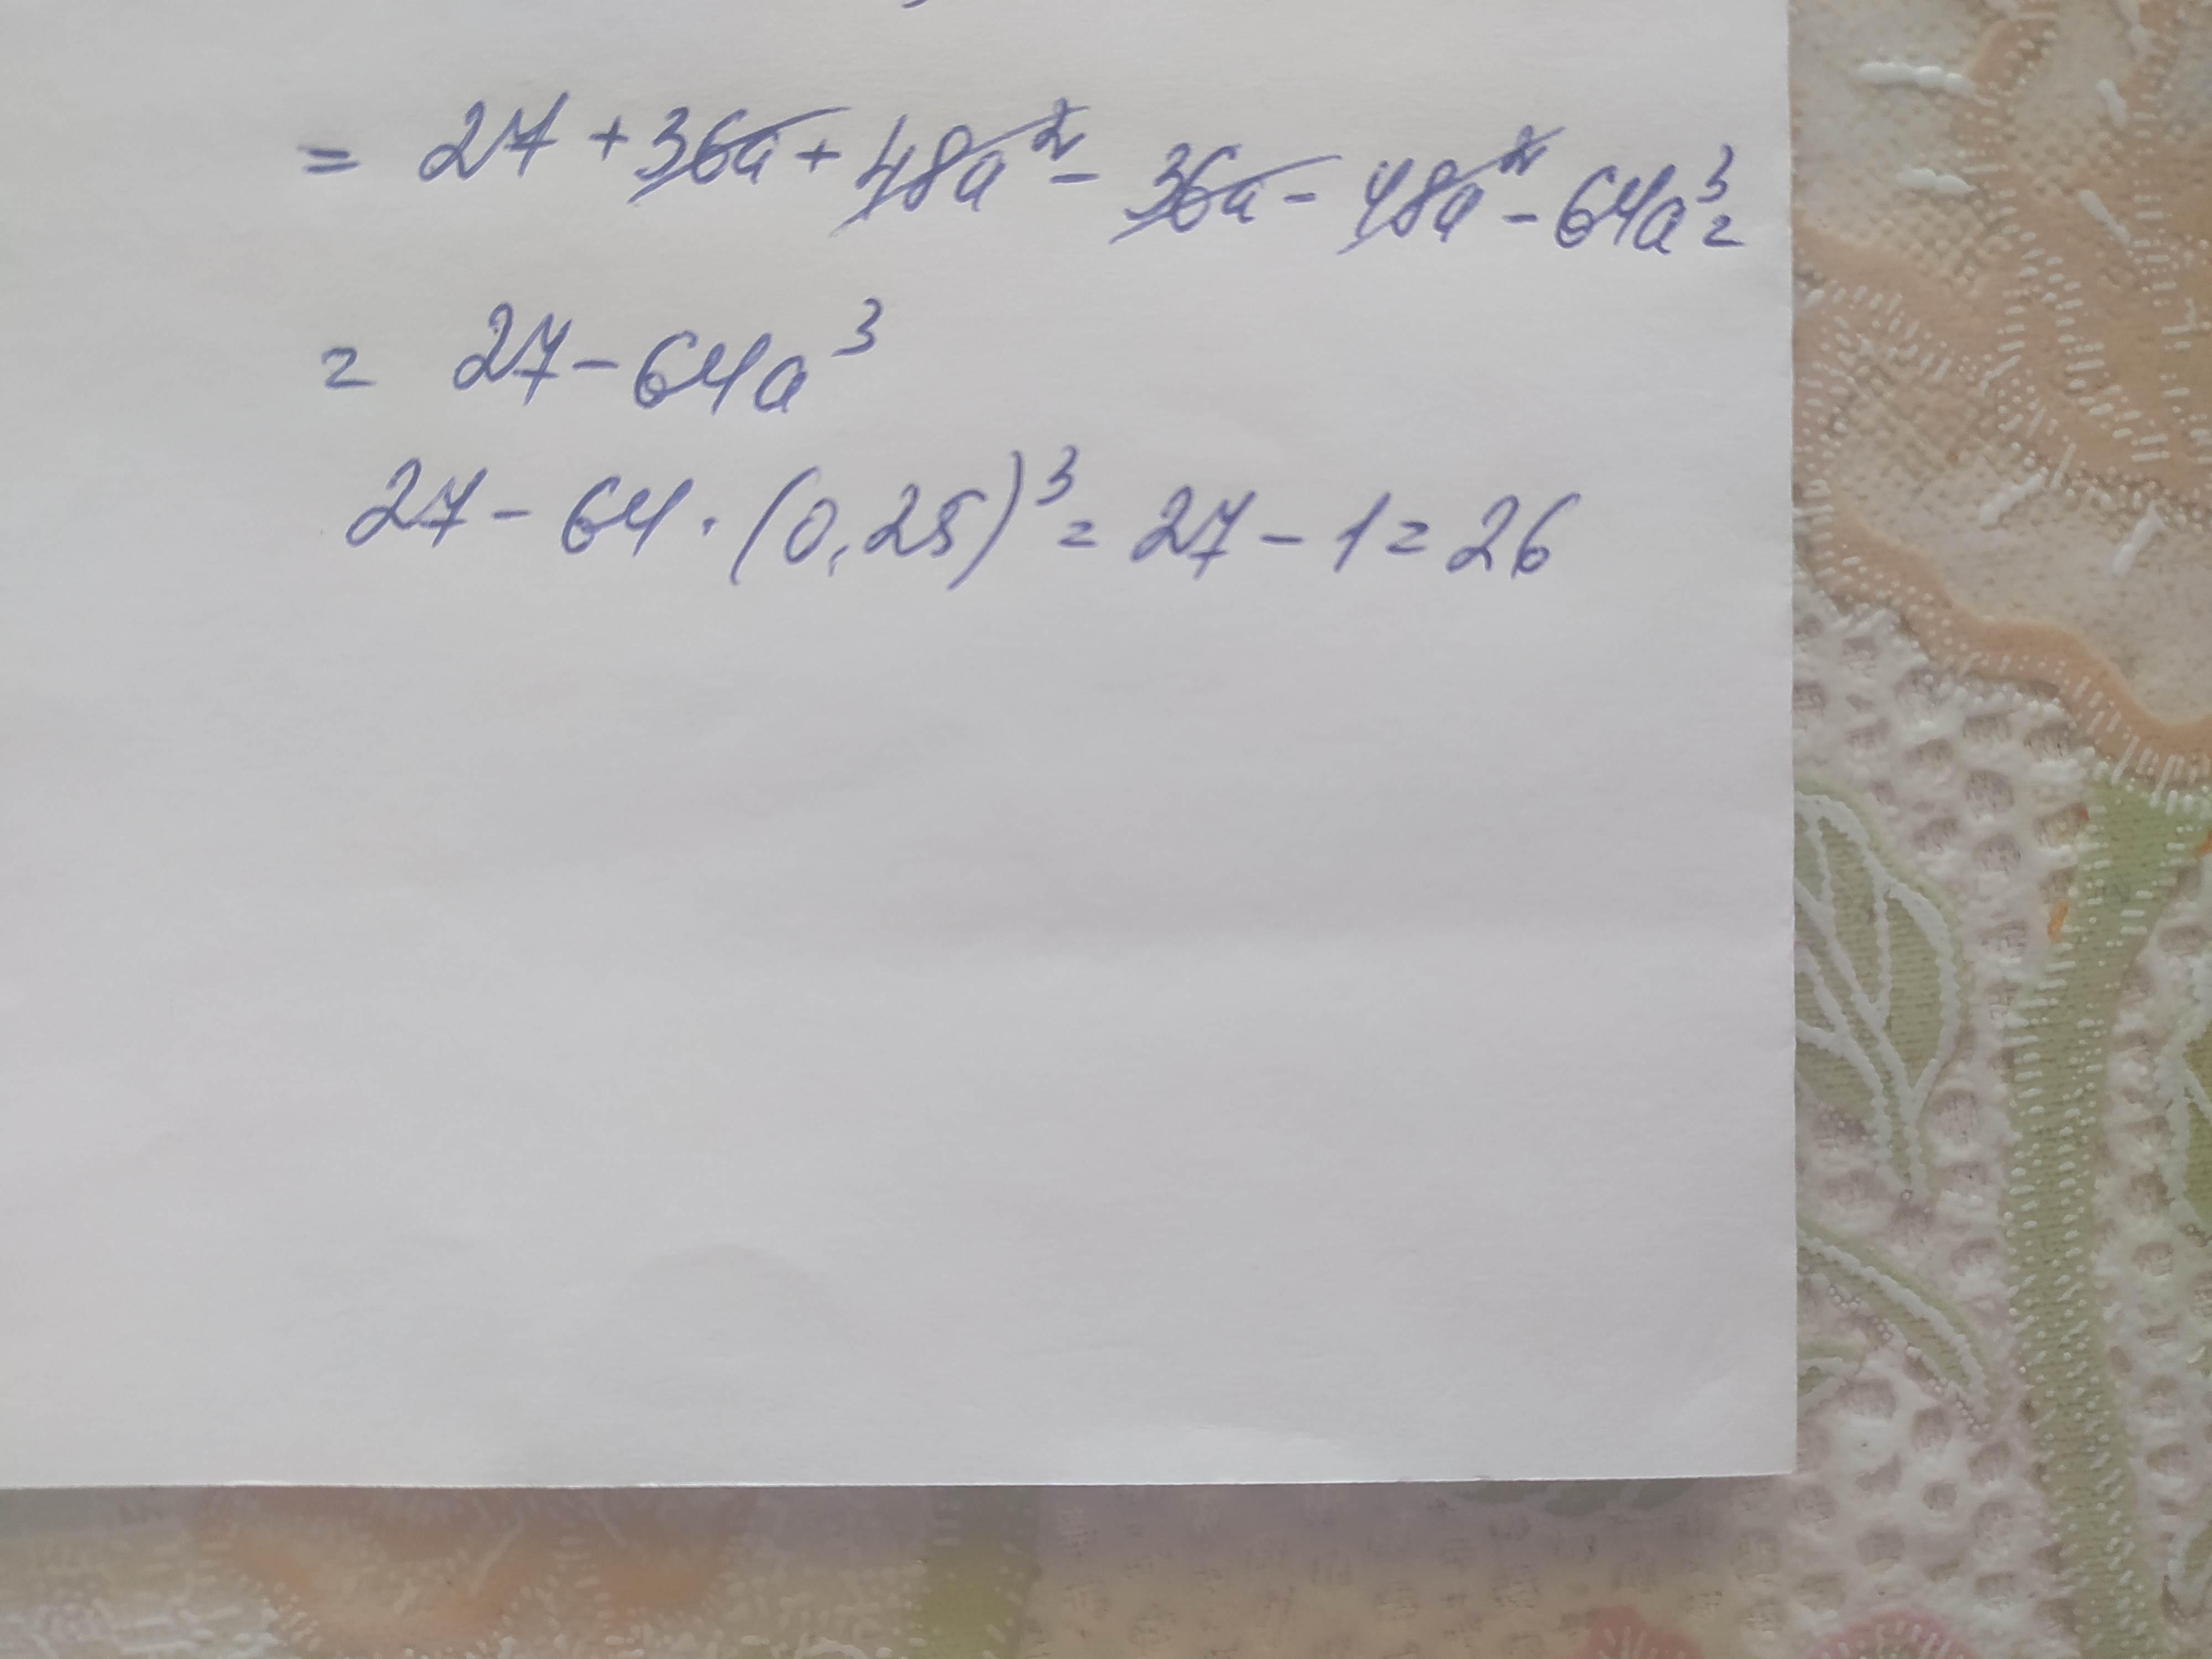 = 27 + 36a + 48a² - 36a - 48a² - 64a³ =
= 27 - 64a³
27 - 64 · (0,25)³ = 27 - 1 = 26